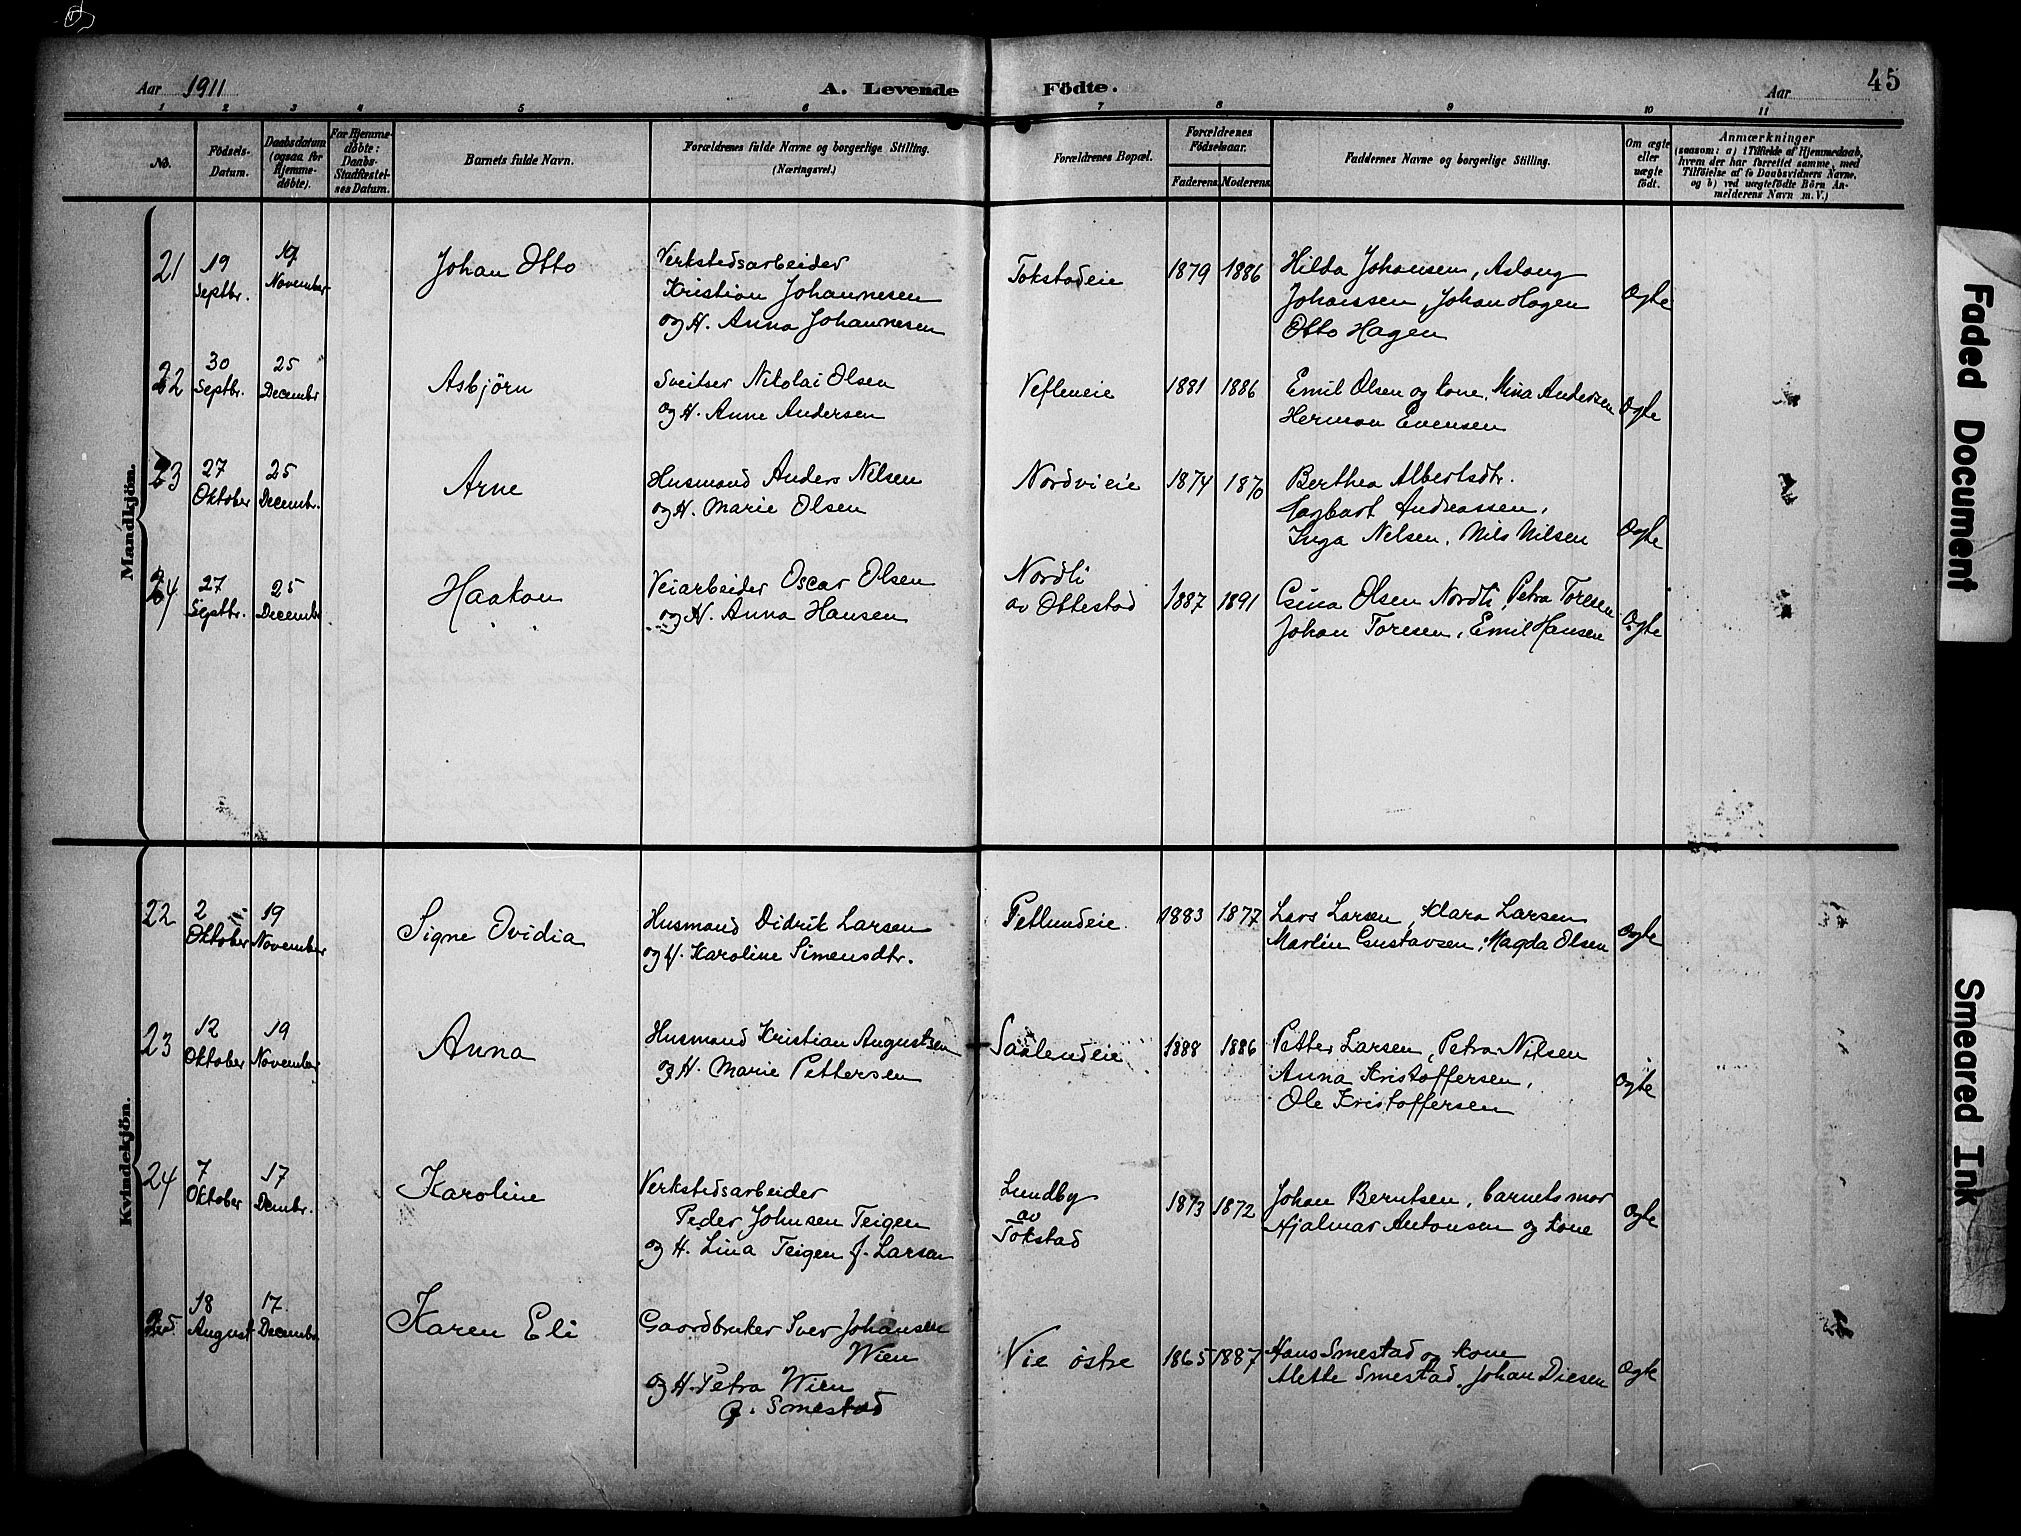 Aar 1911
A. Levende Födte.
Aar
45
1 2 3 4 5 6 7 8 9 10 11
No.
Födsels-
Datum.
Daabsdatum
(ogsaa for
Hjemme-
döbte).
For Hjemme-
döbte:
Daabs-
Stadfæstel-
ses Datum.
Barnets fulde Navn.
Forældrenes fulde Navne og borgerlige Stilling.
(Næringsvei.)
Forældrenes Bopæl.
Forældrenes
Födselsaar.
Faderens Moderens
Faddernes Navne og borgerlige Stilling.
Om ægte
eller
uægte
födt.
Anmærkninger
(saasom: a) i Tilfælde af Hjemmedaab,
hvem der har forrettet samme, med
Tilföielse af to Daabsvidners Navne,
og b) ved uægtefödte Börn An-
melderens Navn m. V.)
Mandkjön.
21
19
Septbr.
November
Johan Otto
Verkstedsarbeider
Kristian Johannesen
og H. Anna Johannesen
Tokstadeie
1879 1886
Hilda Johansen, Aslaug
Johanssen, Johan Hagen
Otto Hagen
Ogte
22
30
Septbr.
25
Decembr
Asbjörn
Sveitser Nikolai Olsen
og H. Anne Andersen
Vefleneie
1881 1886
Emil Olsen og kone, Mina Andersen
Herman Evensen
Ogte
23
27
Oktober
25
Decembr.
Arne
Husmand Anders Nilsen
og H. Marie Olsen
Nordvieie
1874 1870
Berthea Albertsdtr.
Hagbart Andreassen,
Inga Nelsen, Nils Nilsen
Ogte
24
27
Septbr.
25
Decembr
Haakon
Veiarbeider Oscar Olsen
og H. Anna Hansen
Nordli
av Ottestad
1887 1891
Gina Olsen Nordli, Petra Toresen
Johan Toresen, Emil Hansen
Ogte
Kvindekjön.
22
2
Oktober
19
November
Signe Ovidia
Husmand Didrik Larsen
og H. Karoline Simensdtr.
Petlundeie
1883 1877
Lars Larsen, Klara Larsen
Martin Gustavsen, Magda Olsen
Ogte
23
12
Oktober
19
November
Anna
Husmand Kristian Augustsen
og H. Marie Pettersen
Saalundeie
1888 1886
Petter Larsen, Petra Nilsen
Anna Kristoffersen,
Ole Kristoffersen
Ogte
24
7
Oktober
17
Dembr.
Karoline
Verkstedsarbeider
Peder Johnsen Teigen
og H. Lina Teigen f. Larsen
Lundby
av
Tokstad
1873 1872
Johan Berntsen, barnets mor
Hjalmar Antonsen og kone
Ogte
25
18
August
17
Decembr.
Karen Eli
Gaardbruker Iver Johansen
Wien
og H. Petra Wien
f. Smestad
Vie østre
1865 1887
Hans Smestad og kone
Alette Smestad, Johan Diesen
Ogte
Faded Document
Smeared Ink